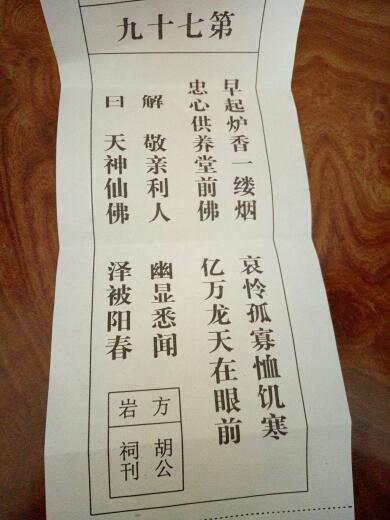 第七十九
早起炉香一缕烟 哀怜孤寡恤饥寒
忠心供养堂前佛 亿万龙天在眼前
解 敬亲利人 幽显悉闻
曰 天神仙佛 泽被阳春
方岩
胡公
祠刊